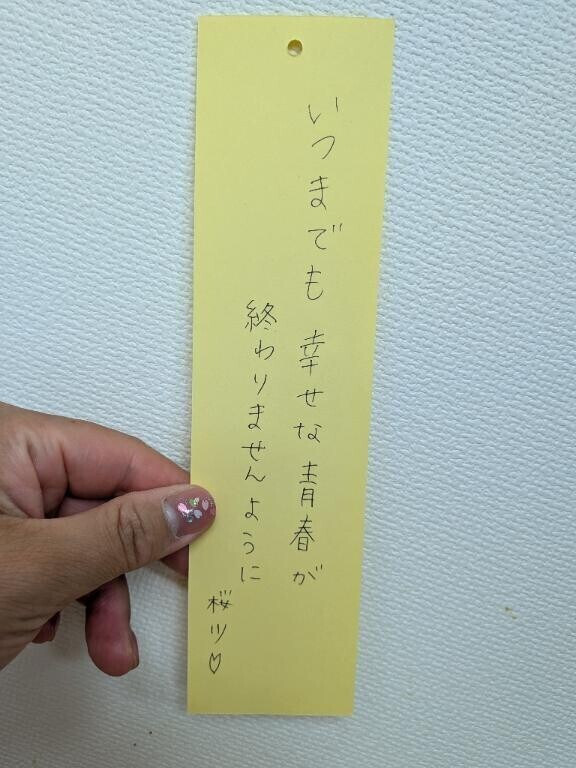 いつまでも幸せな青春が
終わりませんように
桜ツ♡